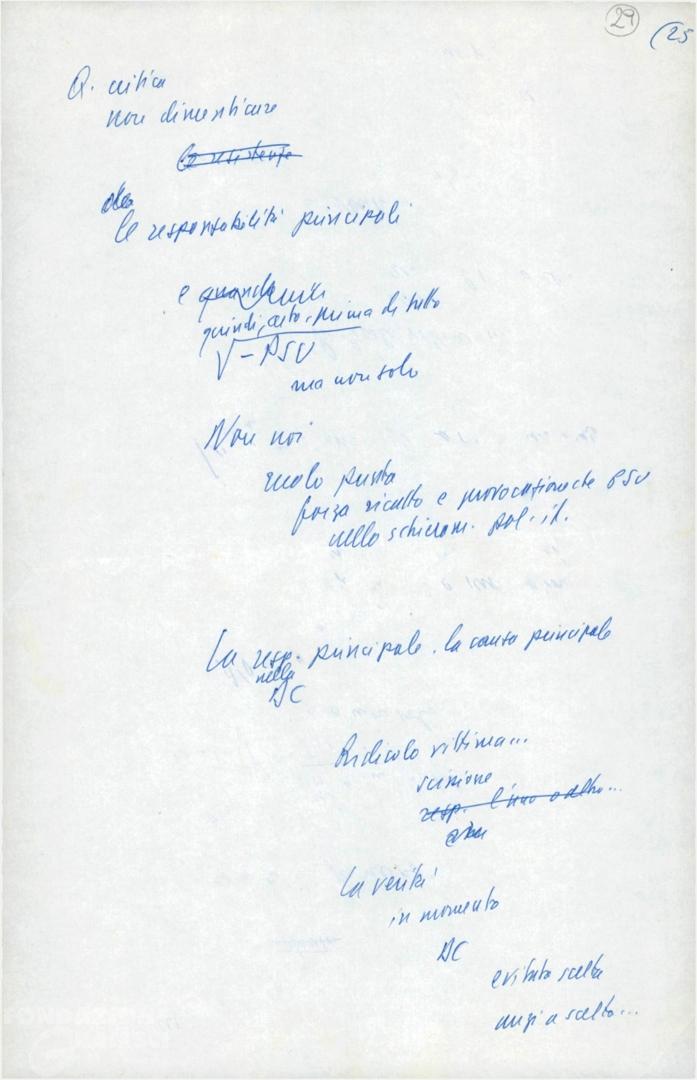 29
(25
Q. critica
non dimenticare
le resistenze
le responsabilità principali
e quando
quindi, certo, prima di tutto
√ - PSU
ma non solo
Non noi
ricatto e provocazione che PSU
nello schieram. pol. it.
La resp. principale. la causa principale
nella
DC
Ridicolo vittima...
scissione
resp. l'uno o altro...
La verità
in momento
DC
evitato scelta
anzi a scelto...